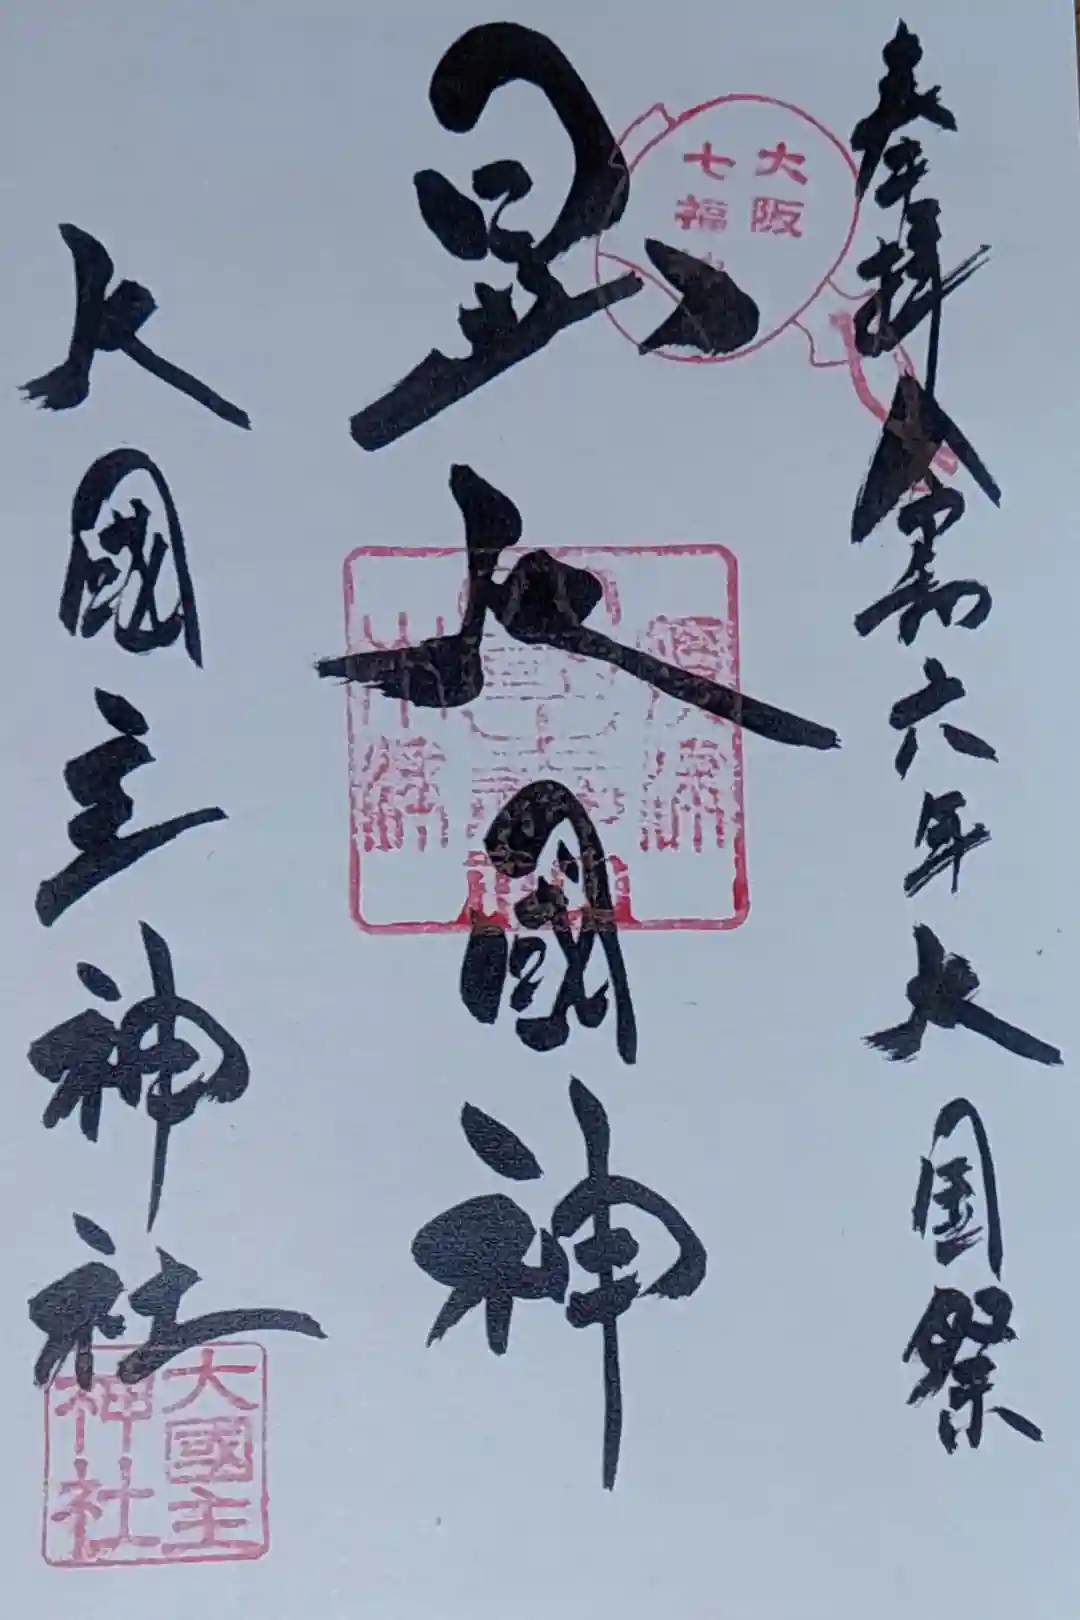 奉拝 令和六年大国祭
大阪
七福神
日出大國神
大國主神社
大國主
神社